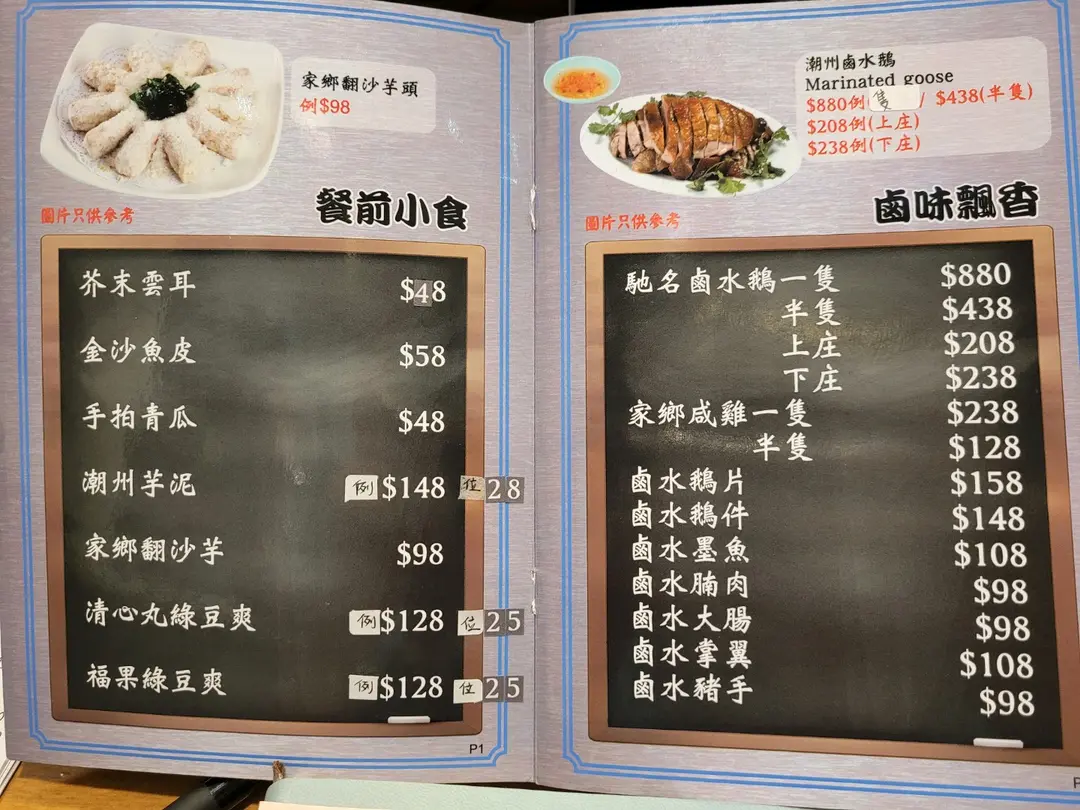 家鄉翻沙芋頭
例$98
圖片只供參考
餐前小食
芥末雲耳 $48
金沙魚皮 $58
手拍青瓜 $48
潮州芋泥 例 $148 位 28
家鄉翻沙芋 $98
清心丸綠豆爽 例 $128 位 25
福果綠豆爽 例 $128 位 25
P1
潮州鹵水鵝
Marinated goose
$880例(隻 / $438(半隻)
$208例(上庄)
$238例(下庄)
圖片只供參考
鹵味飄香
馳名鹵水鵝一隻 $880
半隻 $438
上庄 $208
下庄 $238
家鄉咸雞一隻 $238
半隻 $128
鹵水鵝片 $158
鹵水鵝件 $148
鹵水墨魚 $108
鹵水腩肉 $98
鹵水大腸 $98
鹵水掌翼 $108
鹵水豬手 $98